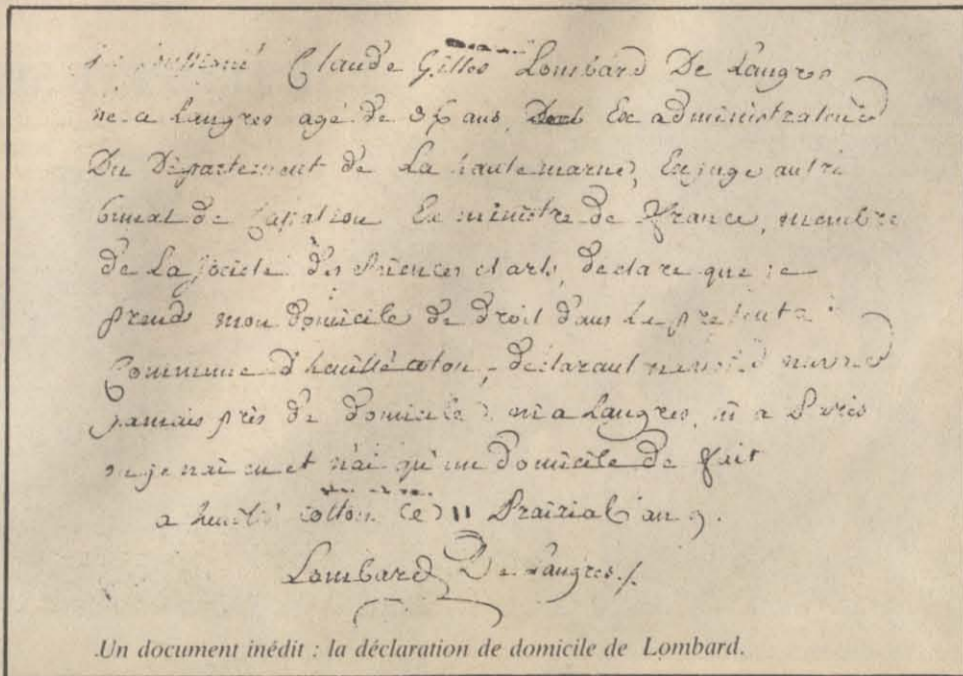 Je soussigné Claude Gilles Lombard De Langres
né a Langres agé de 36 ans, Ex administrateur
Du Département de La haute marne, Ex juge au tri
bunal de Cassation Ex ministre de france, membre
de La societé des sciences et arts, declare que je
prends mon domicile de droit dans La presente
Commune d'huillé coton, declarant
jamais pris de domicile ni a Langres, ni a Paris
ou je n'ai eu et n'ai qu'un domicile de fait
a cotton ce 11 Prairial an 9.
Lombard De Langres
Un document inédit : la déclaration de domicile de Lombard.